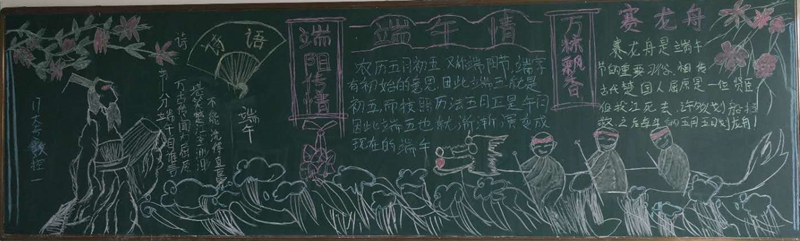 诗语
端午
节分端午自谁言
万古传闻为屈原
堪笑楚江空渺渺
不能洗得直臣冤
端阳传情
端午情
农历五月初五又称端阳节,端字
有初始的意思因此端五就是
初五,而按照历法五月正是午月
因此端五也就渐渐演变成
现在的端午
万粽飘香
赛龙舟
赛龙舟是端午
节的重要习俗,相传
古代楚国人屈原是一位贤臣
但投江死去,许多划船相
救之后每年的五月五日划龙舟